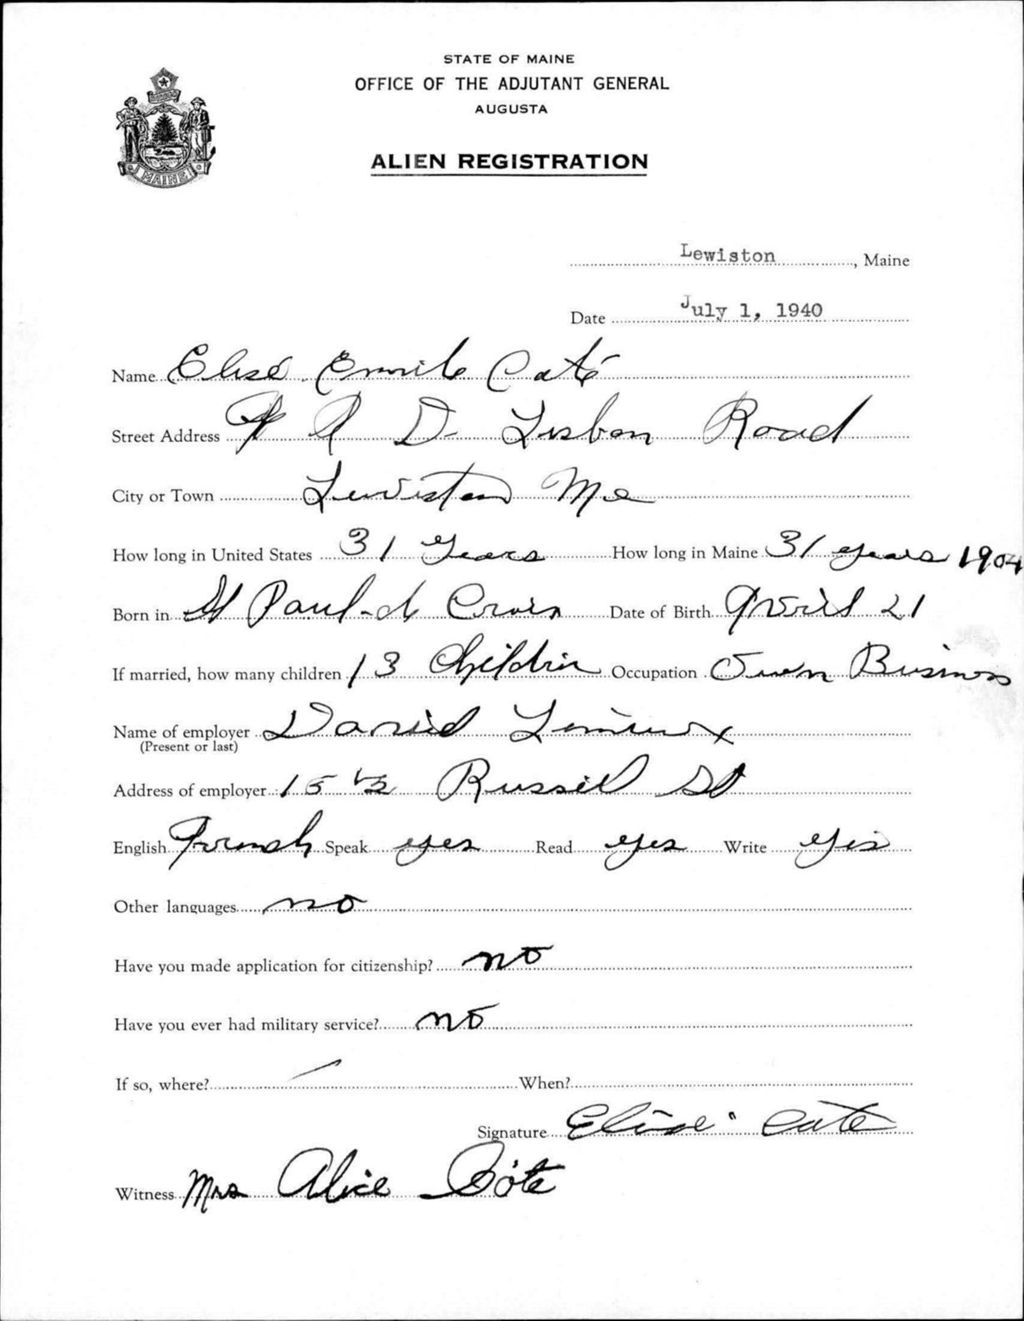 STATE OF MAINE
OFFICE OF THE ADJUTANT GENERAL
AUGUSTA
ALIEN REGISTRATION
MAINE
Lewiston, Maine
Date July 1, 1940
Name Elisé Emile Coté
Street Address R D Lisbon Road
City or Town Lewiston Me
How long in United States 31 Years How long in Maine 31 years 1904
Born in St Paul-de Croix Date of Birth April 21
If married, how many children 13 Children Occupation Own Business
Name of employer David Lemieux
(Present or last)
Address of employer 15 1/2 Russell St
English French Speak yes Read yes Write yes
Other languages no
Have you made application for citizenship? no
Have you ever had military service? no
If so, where? When?
Signature Elisé Cote
Witness Mrs Alice Côte